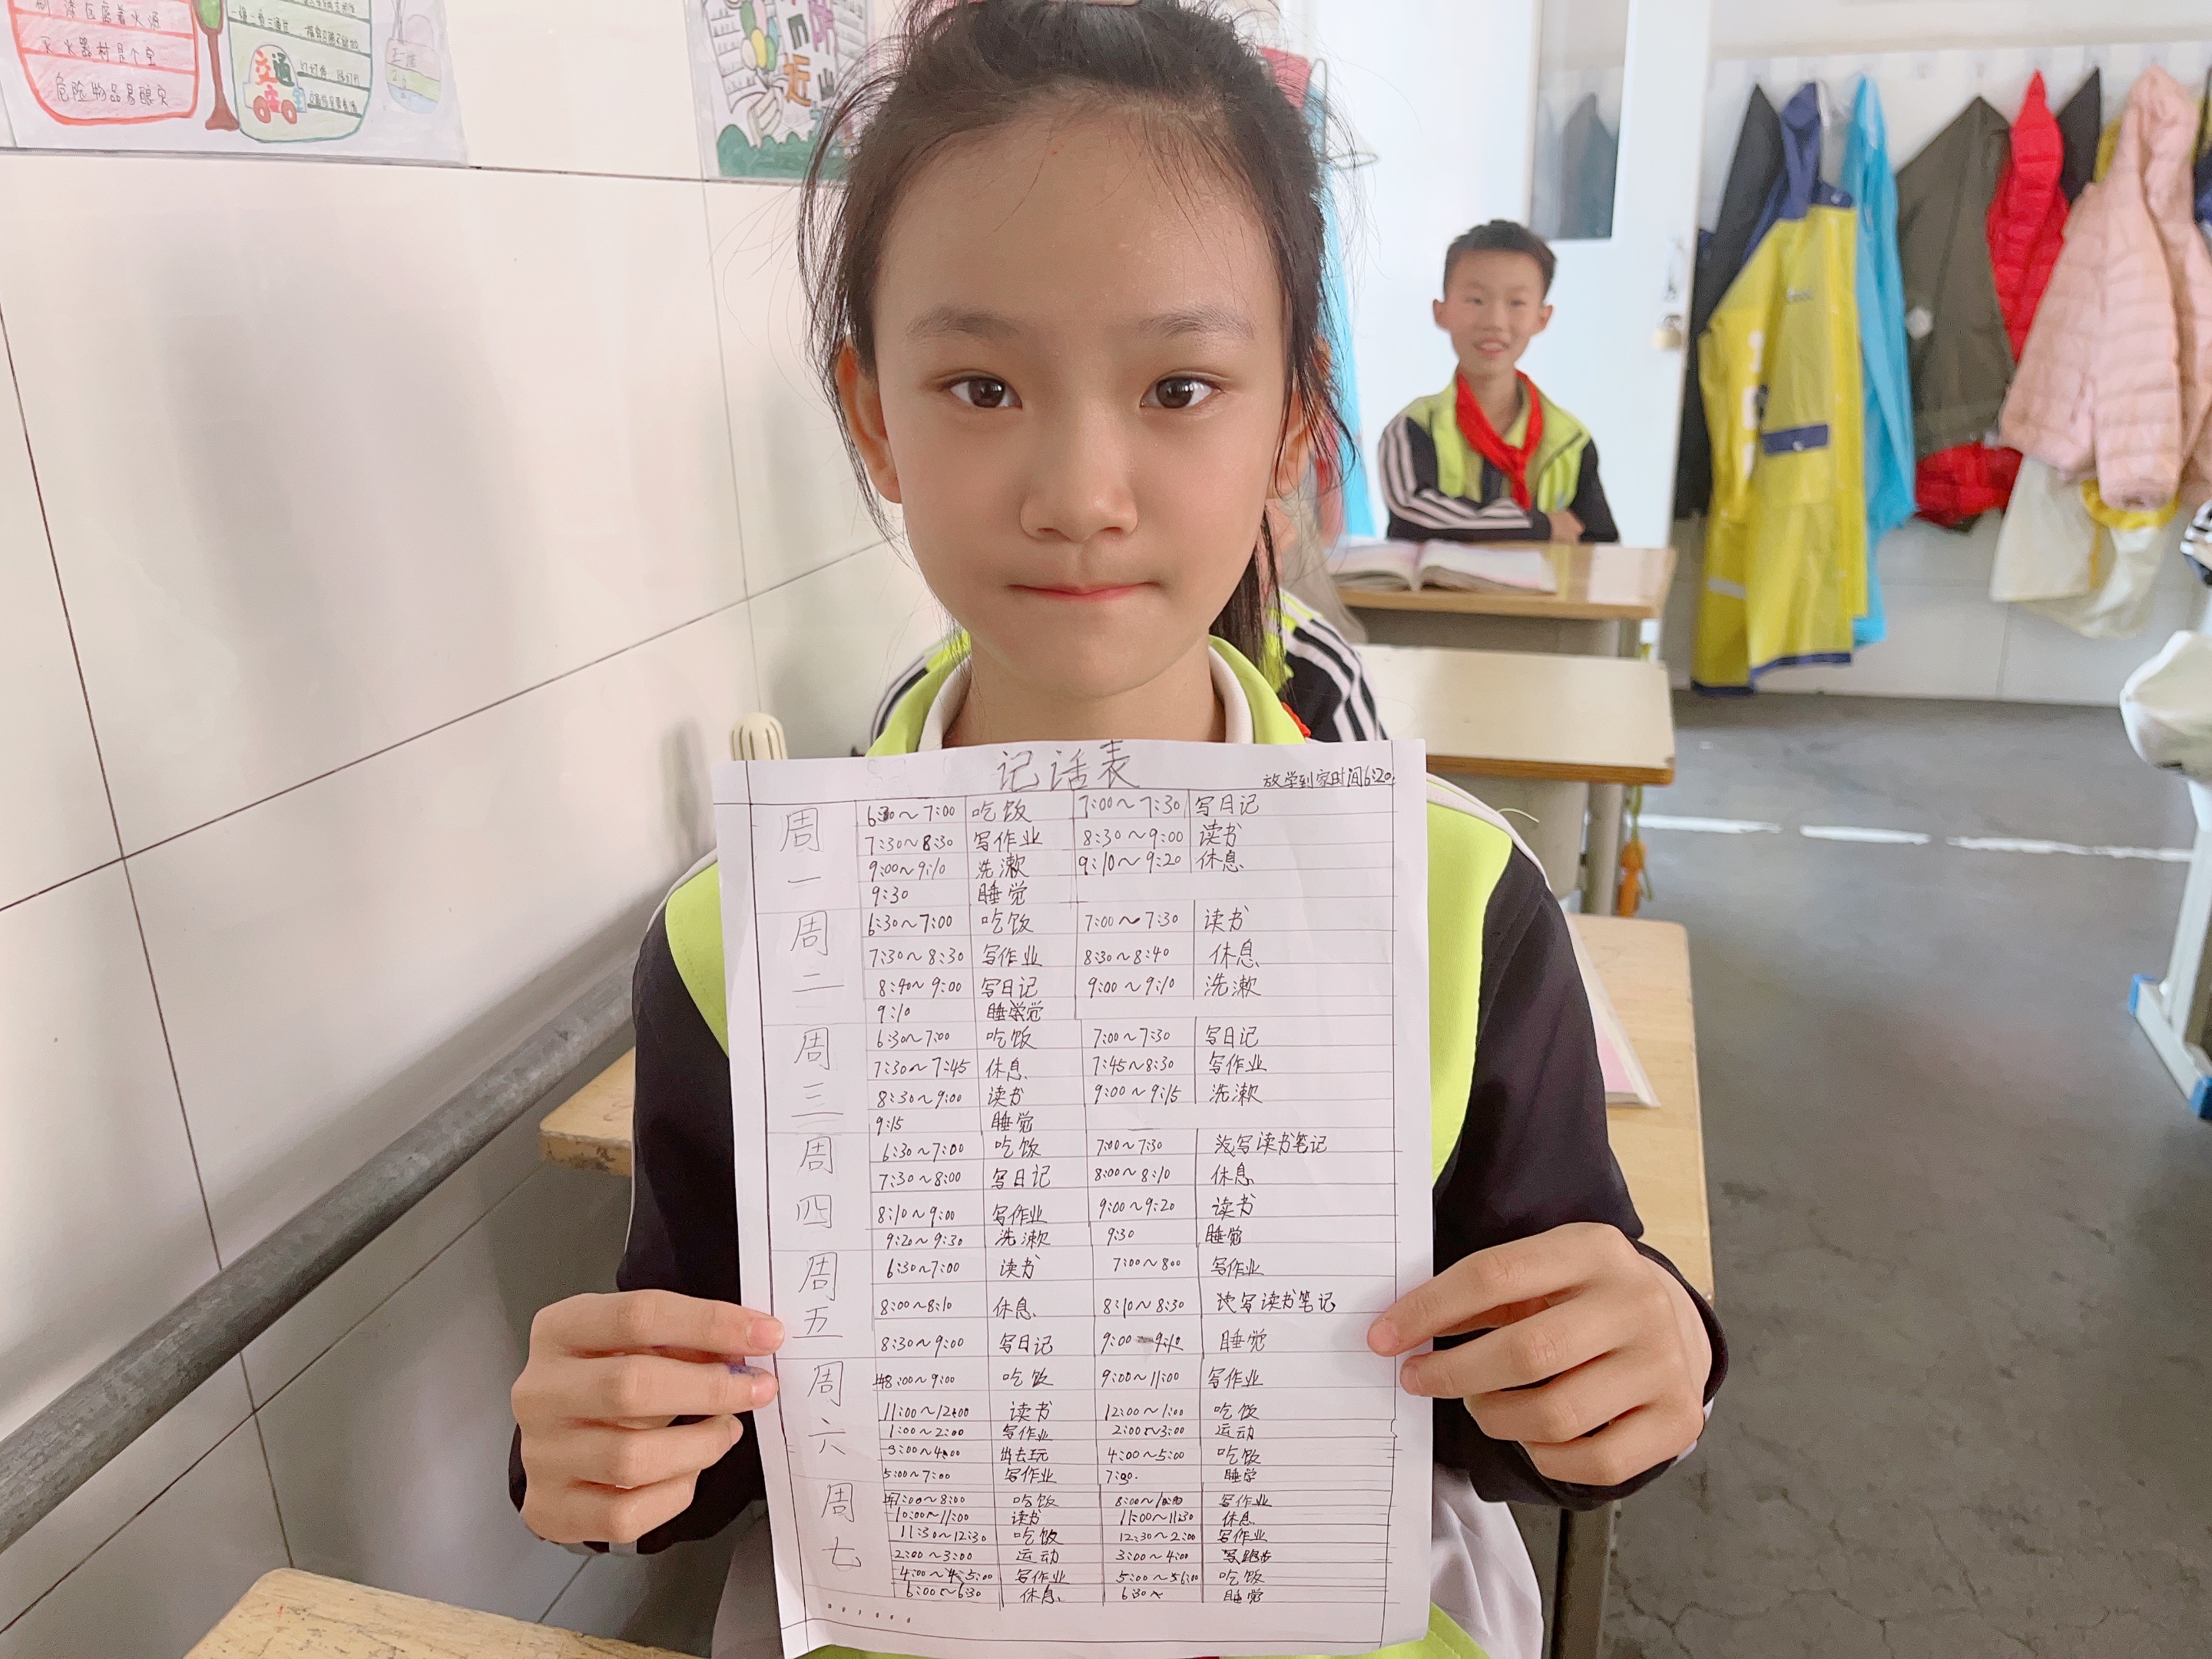 灭火器材是个宝
危险物品易酿灾
交通
安
记话表
放学到家时间6:20
周一
6:30～7:00 吃饭 7:00～7:30 写日记
7:30～8:30 写作业 8:30～9:00 读书
9:00～9:10 洗漱 9:10～9:20 休息
9:30 睡觉
周二
6:30～7:00 吃饭 7:00～7:30 读书
7:30～8:30 写作业 8:30～8:40 休息
8:40～9:00 写日记 9:00～9:10 洗漱
9:10 睡觉
周三
6:30～7:00 吃饭 7:00～7:30 写日记
7:30～7:45 休息 7:45～8:30 写作业
8:30～9:00 读书 9:00～9:15 洗漱
9:15 睡觉
周四
6:30～7:00 吃饭 7:00～7:30 写读书笔记
7:30～8:00 写日记 8:00～8:10 休息
8:10～9:00 写作业 9:00～9:20 读书
9:20～9:30 洗漱 9:30 睡觉
周五
6:30～7:00 读书 7:00～8:00 写作业
8:00～8:10 休息 8:10～8:30 写读书笔记
8:30～9:00 写日记 9:00 睡觉
周六
8:00～9:00 吃饭 9:00～11:00 写作业
11:00～12:00 读书 12:00～1:00 吃饭
1:00～2:00 写作业 2:00～3:00 运动
3:00～4:00 出去玩 4:00～5:00 吃饭
5:00～7:00 写作业 7:30. 睡学
周七
7:00～8:00 吃饭 8:00～10:00 写作业
10:00～11:00 读书 11:00～11:30 休息
11:30～12:30 吃饭 12:30～2:00 写作业
2:00～3:00 运动 3:00～4:00 跑步
4:00～5:00 写作业 5:00～6:00 吃饭
6:00～6:30 休息 6:30～ 睡觉